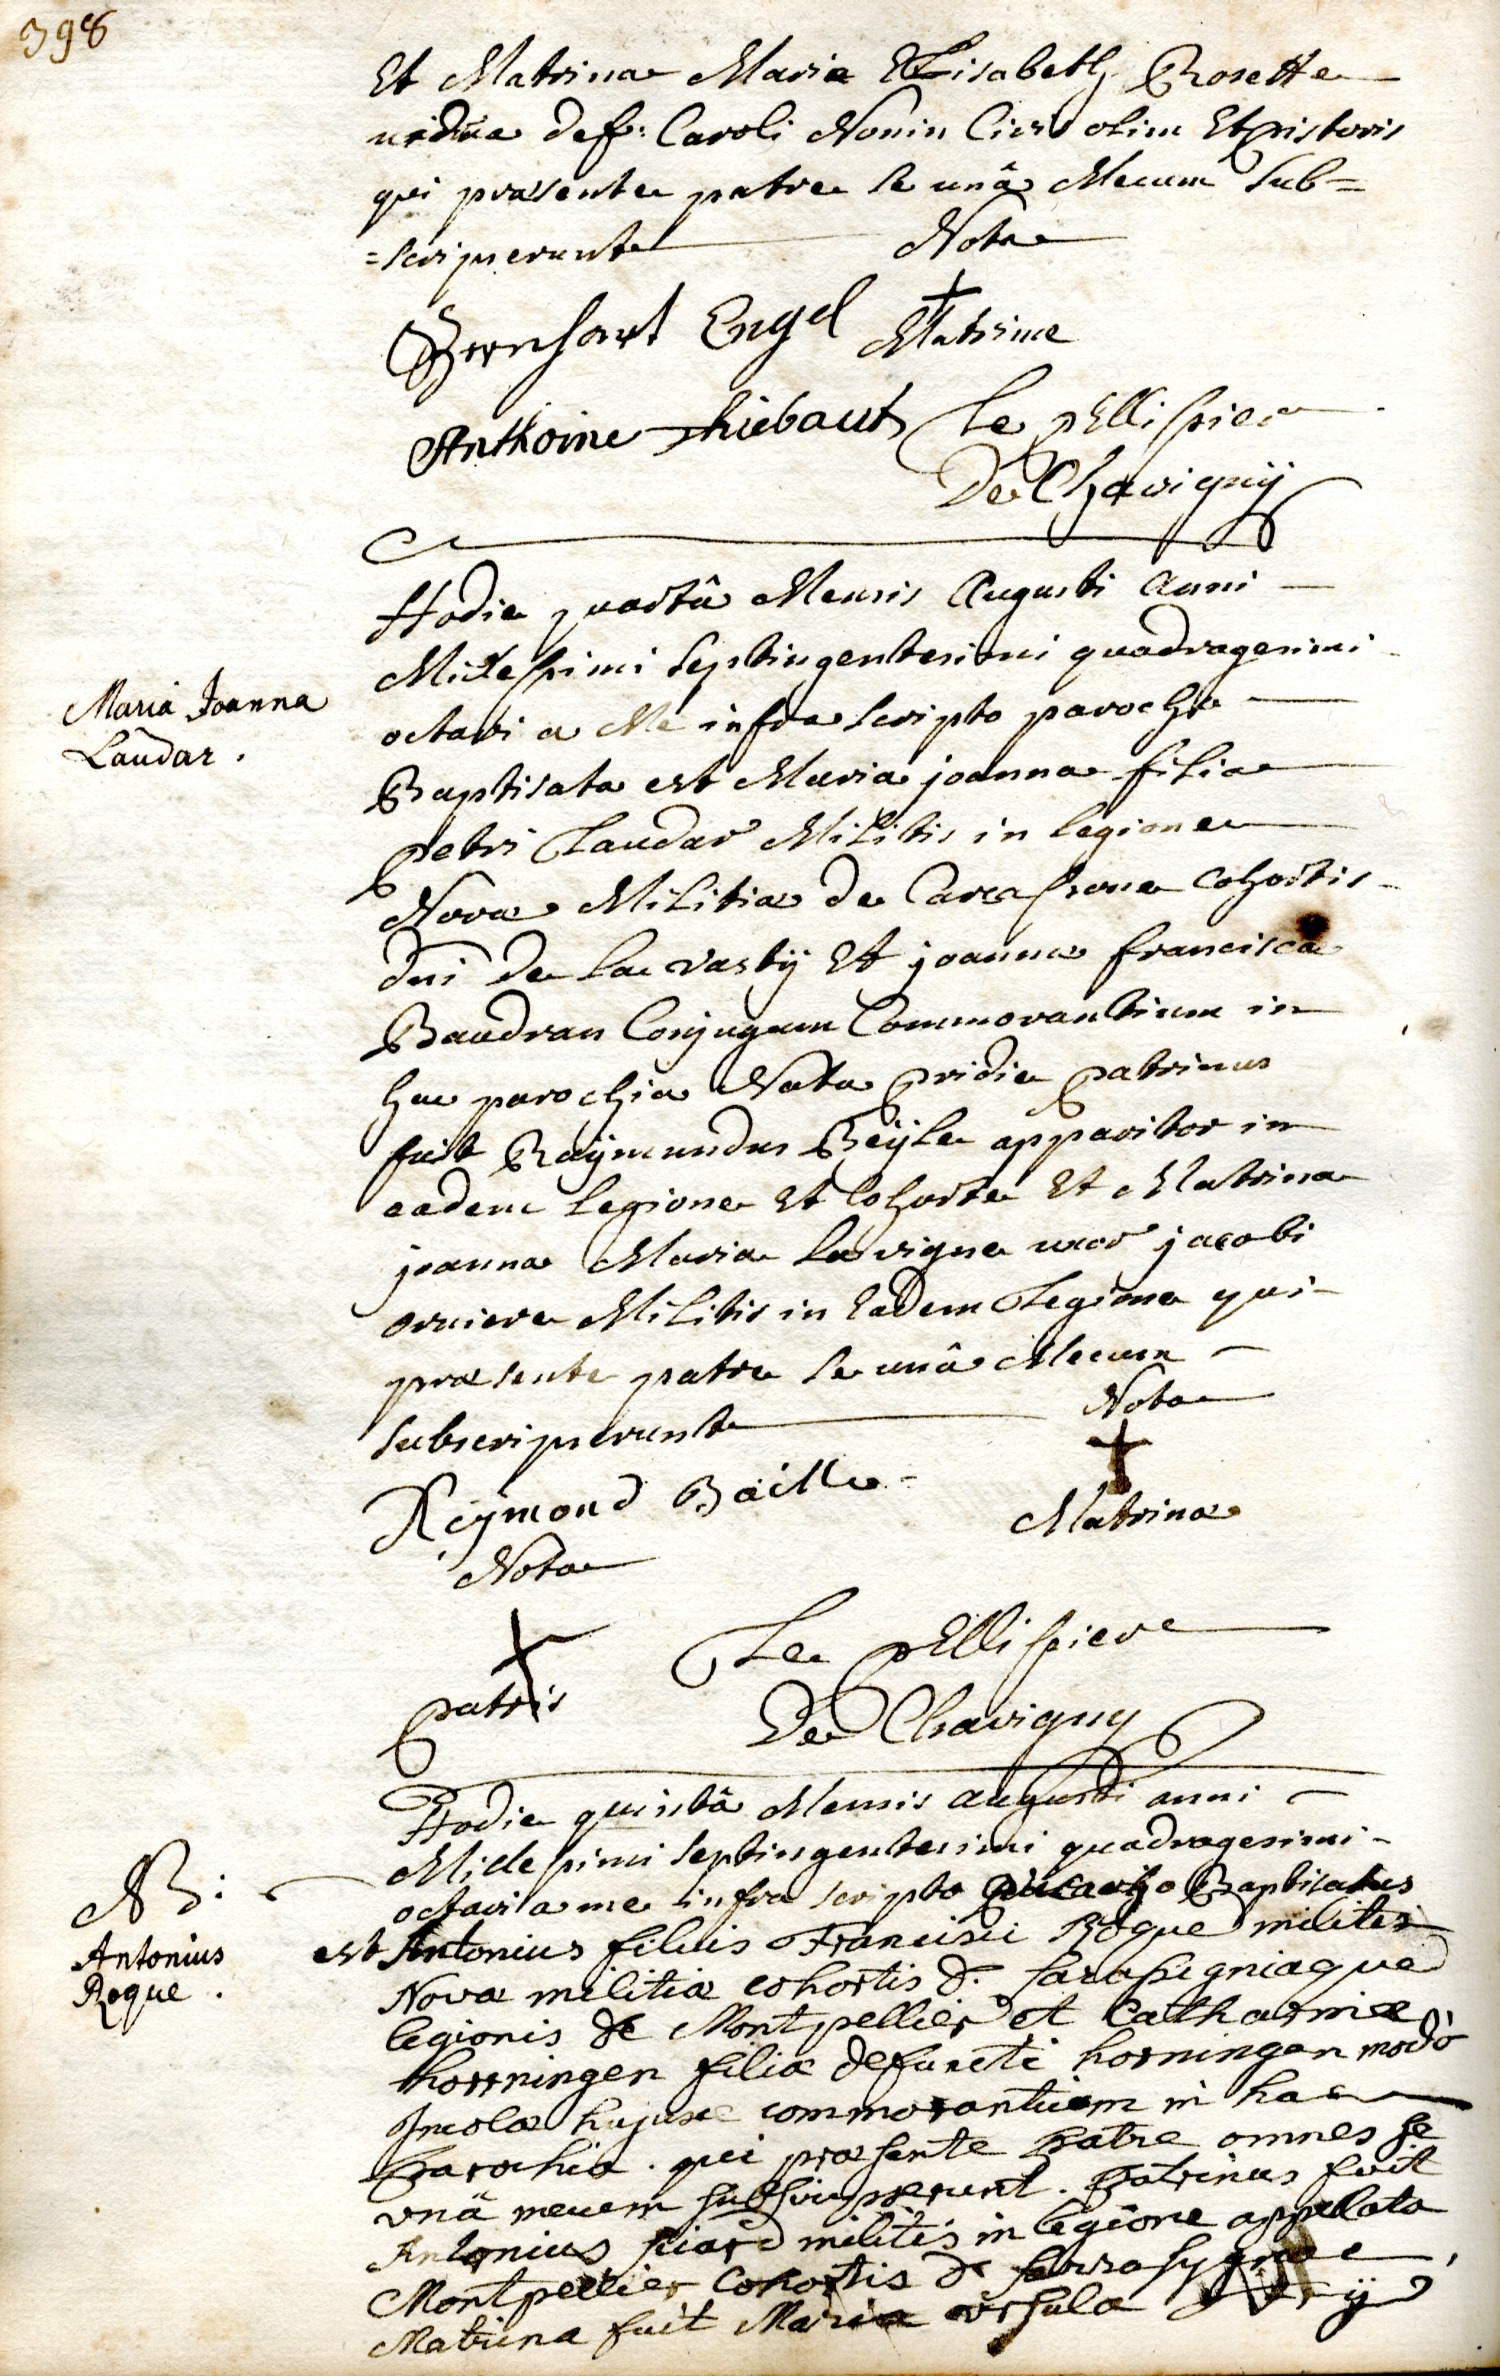 398
Et Matrina Maria Elisabeth Rosette
vidua def: Caroli Nonin Civis olim Et pistoris
qui præsente patre se unâ Mecum sub=
=scripserunt Nota
Bernhart Engel Matrinæ
Anthoine Thiebaut Le pELLissier
De Chavignÿ
Hodie quartâ Mensis Augusti Anni
Millessimi septingentesimi quadragesimi
octavi a Me infra scripto parocho
Maria Joanna
Laudar.
Baptisata est Maria joanna filia
petri Laudar Militis in legione
Novæ Militiæ de Carcassone Cohortis
dni de La vastÿ Et joannæ franciscæ
Baudran Conjugum Commorantium in
hac parochia Nata pridie patrinus
fuit Raÿmundus Beÿle apparitor in
eadem legione Et Cohorte Et Matrina
joanna Maria la vigne uxor jacobi
orniere Militis in Eadem Legione qui
præsente patre se unâ Mecum
subscripserunt Nota
Reÿmond Baille Matrinæ
Nota
patris Le pELLissier
De Chavigny
Hodie quintâ Mensis augusti anni
Millessimi septingentesimi quadragesimi
NB:
octavi a me infra scripto Baptisatus
Antonius
Roque.
est Antonius filius Francisci Roque militis
Novæ militiæ cohortis d.
legionis de Montpellier et Catharinæ
horningen filiæ defuncti horningen modò
Incolæ hujusce commorantium in hac
parochia. qui præsente patre omnes se
vnâ mecum subscripserunt. patrinus fuit
Antonius piard militis in legione appellata
Montpellier Cohortis d
Matrina fuit Maria vrsula